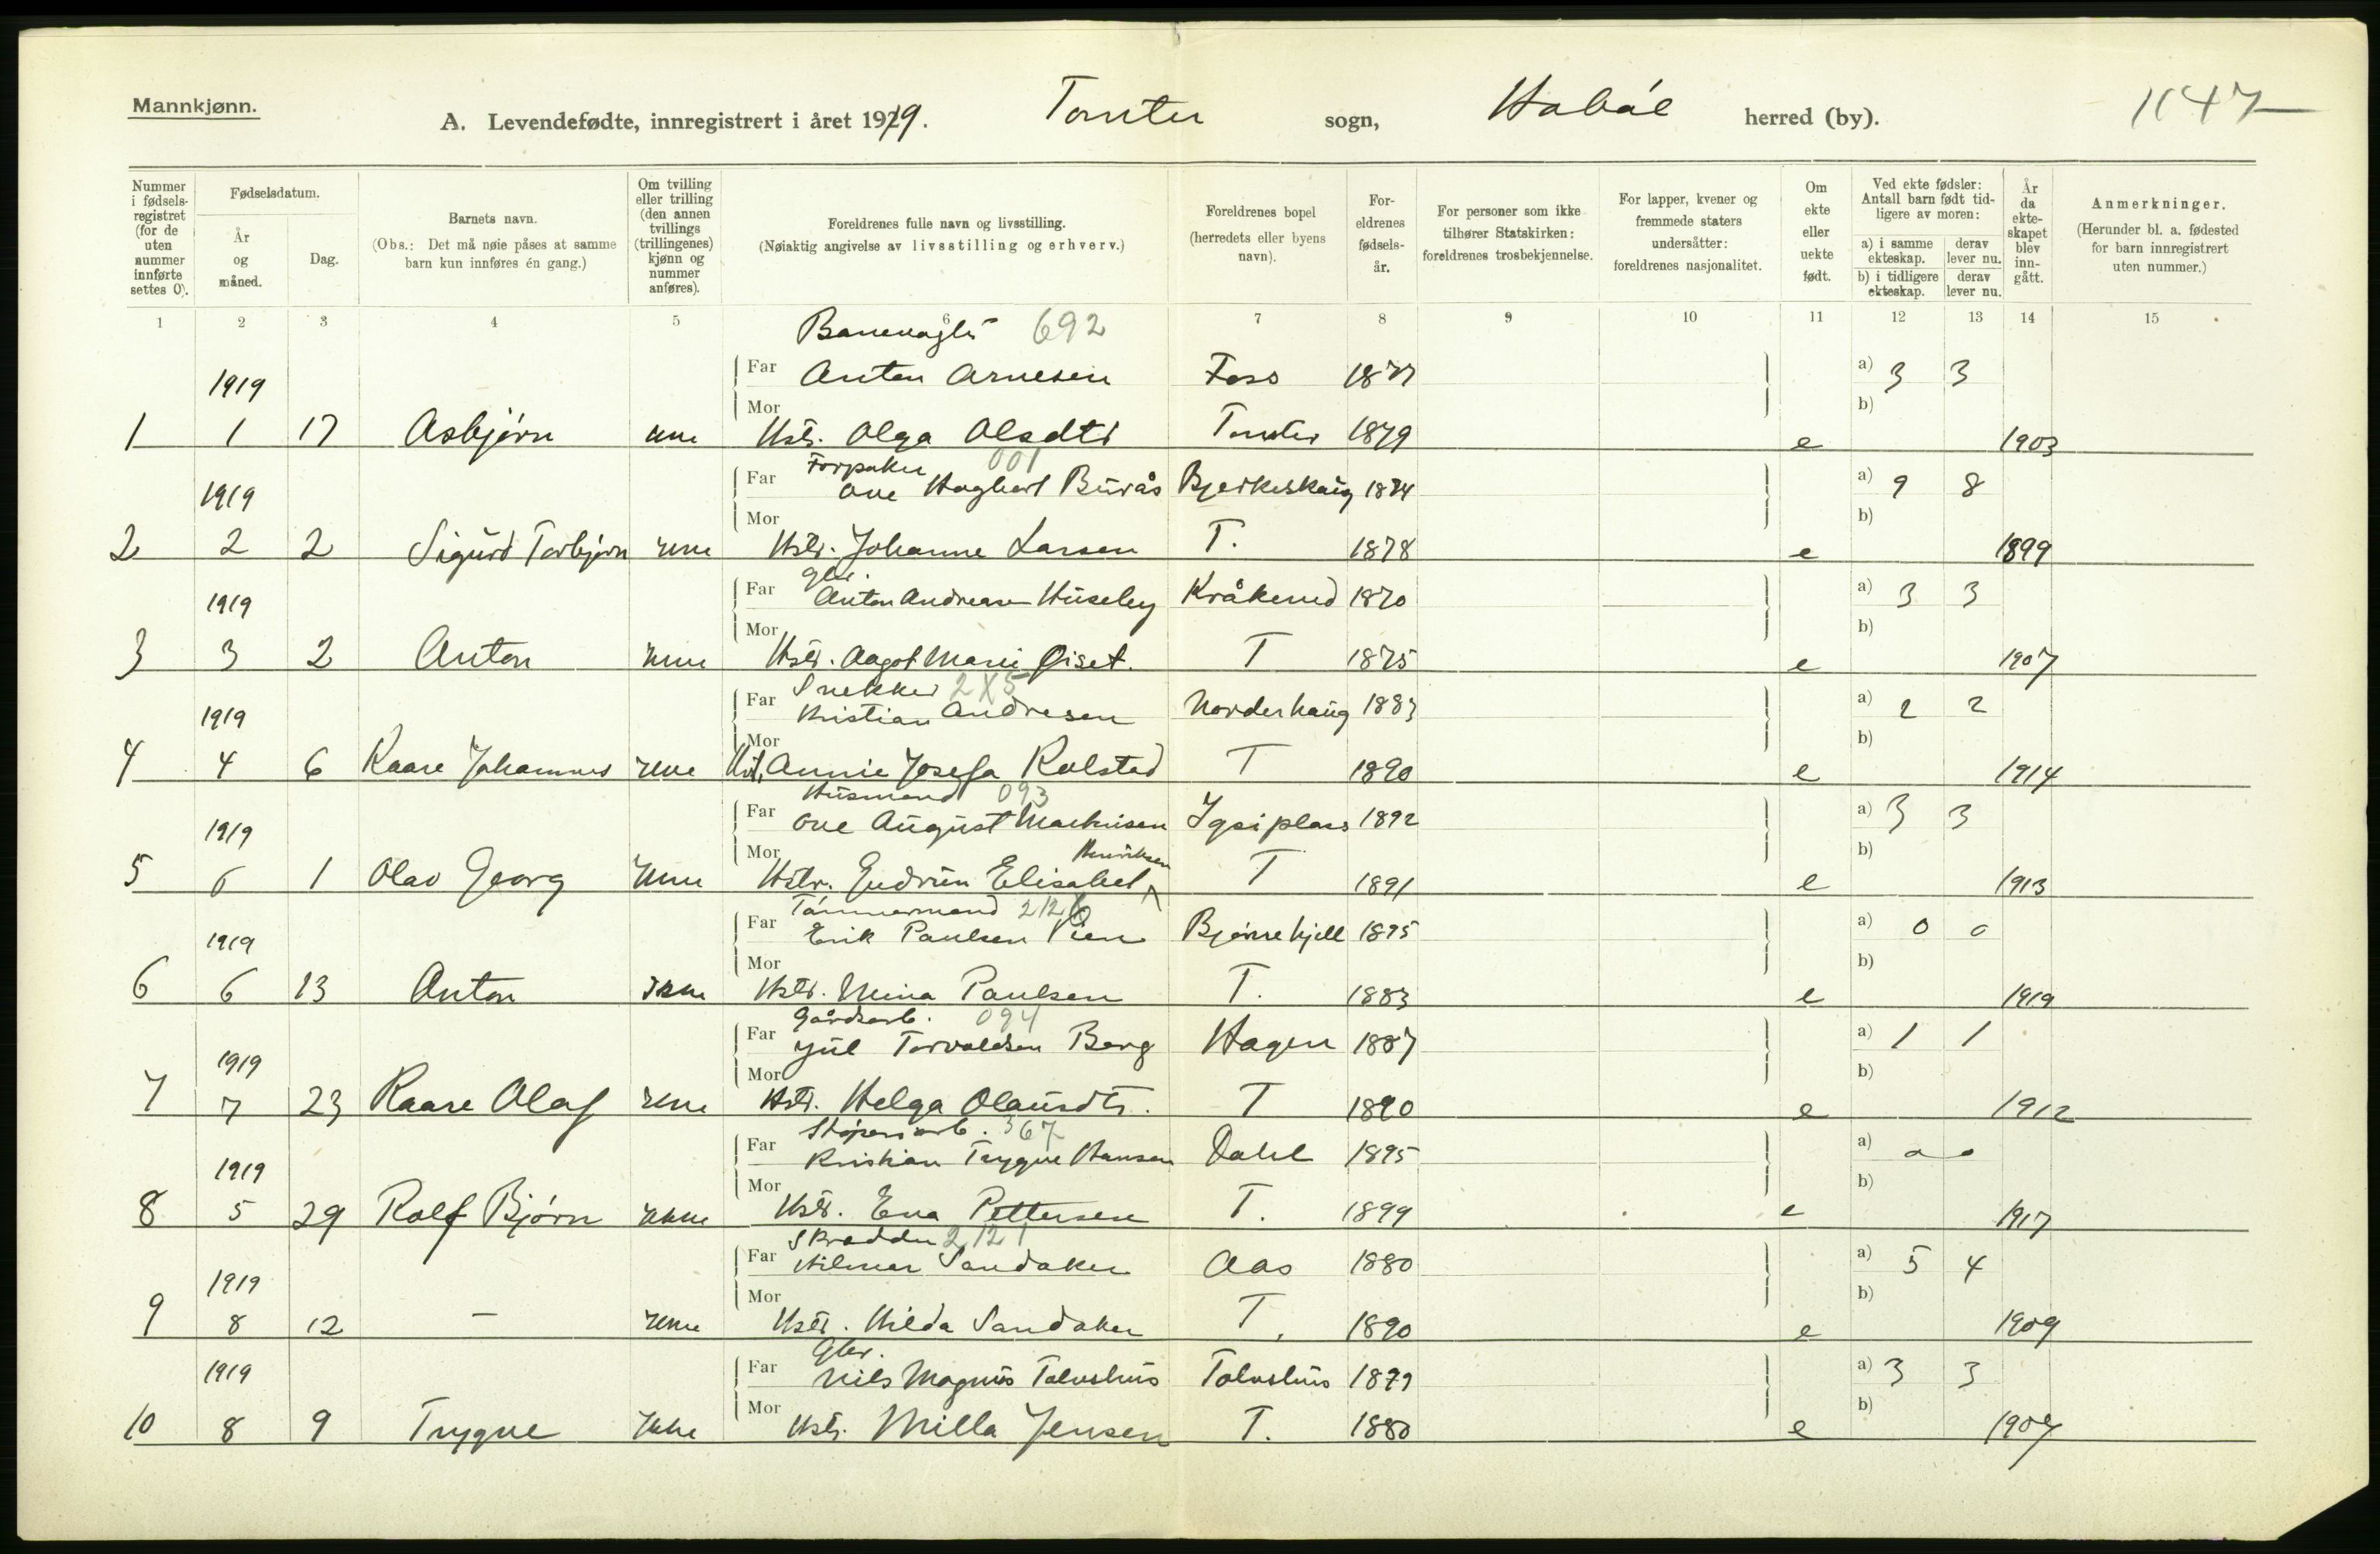 Mannkjønn.
A. Levendefødte, innregistrert i året 1919. Tomter sogn, Hobøl herred (by). 1147
Nummer i fødsels-registret (for de uten nummer innførte settes 0).
Fødselsdatum.
År og måned.
Dag.
Barnets navn.
(Obs.: Det må nøie påses at samme barn kun innføres én gang.)
Om tvilling eller trilling (den annen tvillings (trillingenes) kjønn og nummer anføres).
Foreldrenes fulle navn og livsstilling.
(Nøiaktig angivelse av livsstilling og erhverv.)
Foreldrenes bopel (herredets eller byens navn).
For-eldrenes fødsels-år.
For personer som ikke tilhører Statskirken: foreldrenes trosbekjennelse.
For lapper, kvener og fremmede staters undersåtter: foreldrenes nasjonalitet.
Om ekte eller uekte født.
Ved ekte fødsler: Antall barn født tid-ligere av moren:
a) i samme ekteskap. derav lever nu.
b) i tidligere ekteskap. derav lever nu.
År da ekte-skapet blev inn-gått.
Anmerkninger.
(Herunder bl. a. fødested for barn innregistrert uten nummer.)
1 2 3 4 5 6 7 8 9 10 11 12 13 14 15
Banevogter 692
1919 Far Anton Arnesen Foss 1877 a) 3 3
Mor b)
1 1 17 Asbjørn Hstr. Olga Olsdtr Tomter 1879 e 1903
Forpakter 001
1919 Far Ove Hagbart Burås Bjerkeskaug 1874 a) 9 8
Mor b)
2 2 2 Sigurd Torbjørn Hstr. Johanne Larsen T. 1878 e 1899
Gbr.
1919 Far Anton Andreasen Huseby Kråkerud 1870 a) 3 3
Mor b)
3 3 2 Anton Hstr. Aagot Marie Øiset. T 1875 e 1907
Snekker 2X5
1919 Far Kristian Andresen Norderhaug 1883 a) 2 2
Mor b)
4 4 6 Kaare Johannes Hstr. Annie Josefa Kolstad T 1890 e 1914
Husmand 093
1919 Far Ove August 1892 a) 3 3
Mor Henriksen b)
5 6 1 Olav Georg Hstr. Gudrun Elisabet T 1891 e 1913
Tømmermand 212
1919 Far Erik Paulsen 1895 a) 0 0
Mor b)
6 6 13 Anton Ikke Hstr. Mina Paulsen T. 1883 e 1919
Gårdsarb. 094
1919 Far Jul Torvaldsen Berg Hagen 1887 a) 1 1
Mor b)
7 7 23 Kaare Olaf Hstr. Helga Olausdtr. T 1890 e 1912
Støperiarb. 367
1919 Far Kristian Trygve Hansen Dahl 1895 a) 0 0
Mor b)
8 5 29 Rolf Bjørn Hstr. Eva Pettersen T. 1899 e 1917
Skrædder 2121
1919 Far Hilmar Sandaker Aas 1880 a) 5 4
Mor b)
9 8 12 — Hstr. Hilda Sandaker T. 1890 e 1909
Gbr.
1919 Far Nils Magnus Tolvshus Tolvshus 1879 a) 3 3
Mor b)
10 8 9 Trygve Ikke Hstr. Milla Jensen T. 1880 e 1907